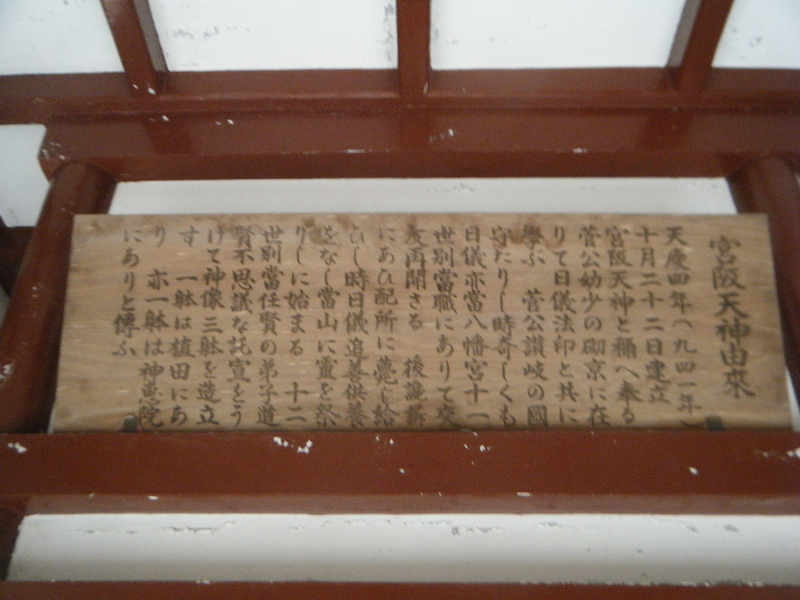 宮阪天神由來
天慶四年(九四一年)
十月二十二日建立
宮阪天神と稱へ奉る
菅公幼少の砌京に在
りて日儀法印と共に
學ぶ 菅公讃岐の國
守たりし時奇しくも
日儀亦當八幡宮十一
世別當職にありて交
友再開さる 後讒訴
にあひ配所に薨じ給
ひし時日儀追善供養
をなし當山に靈を祭
りしに始まる 十二
世別當任賢の弟子道
賢不思議な託宣をう
けて神像三躰を造立
す 一躰は植田にあ
り 亦一躰は神恵院
にありと傳ふ